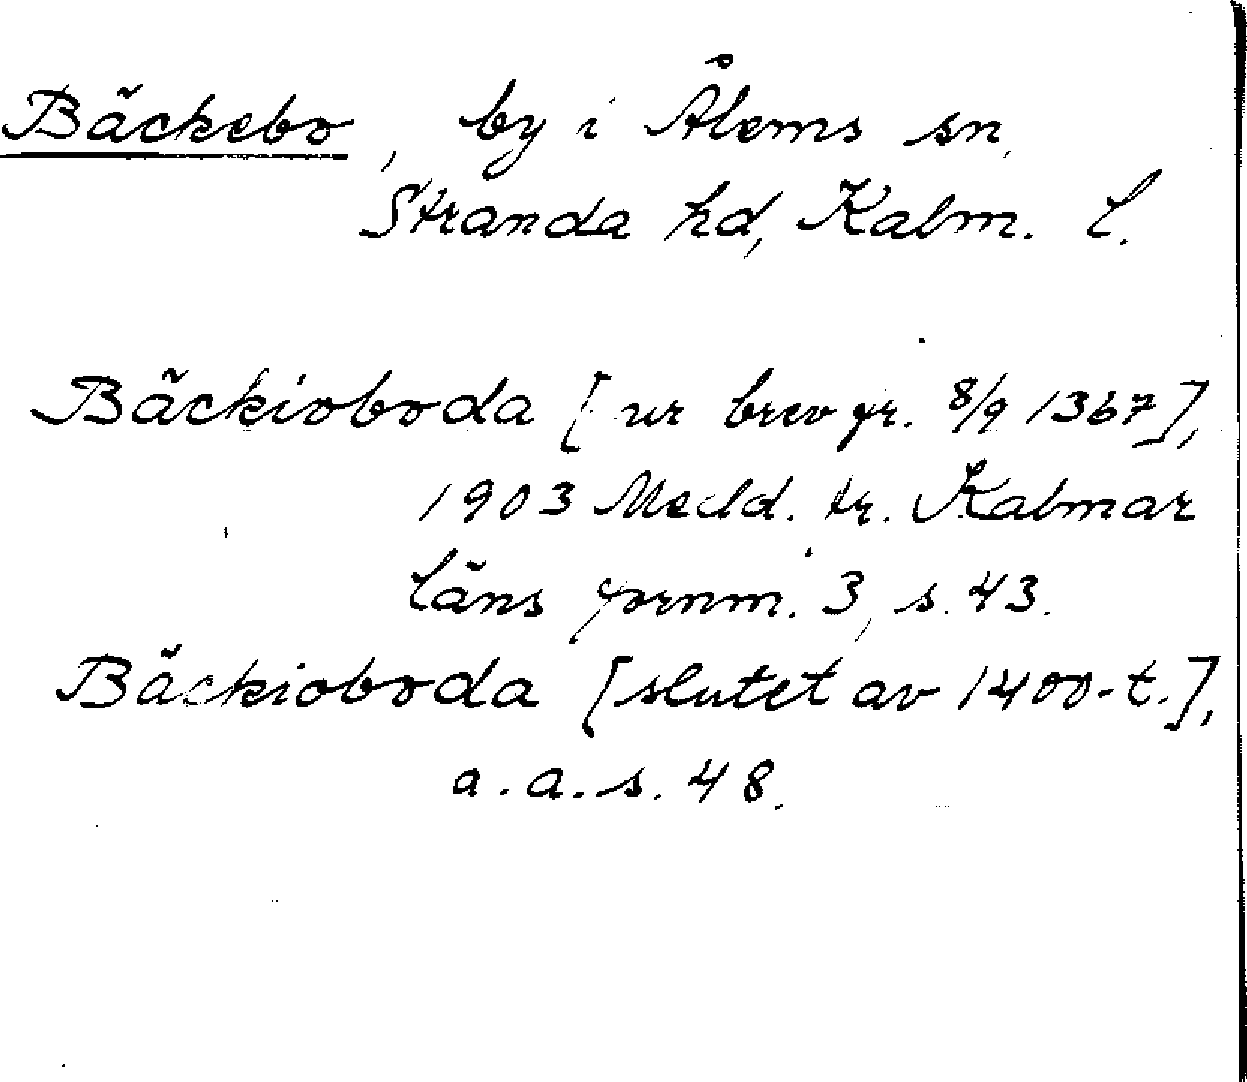 Bäckebo, by i Ålems sn,
Stranda hd, Kalm. l.
Bäckioboda [ur brev fr. 8/9 1367],
1903 Medd. fr. Kalmar
läns fornm. 3, s. 43.
Bäckioboda [slutet av 1400-t.],
a. a. s. 48.